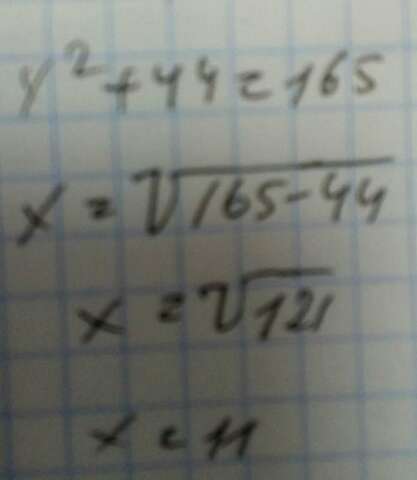 x² + 44 = 165
x = √165-44
x = √121
x = 11